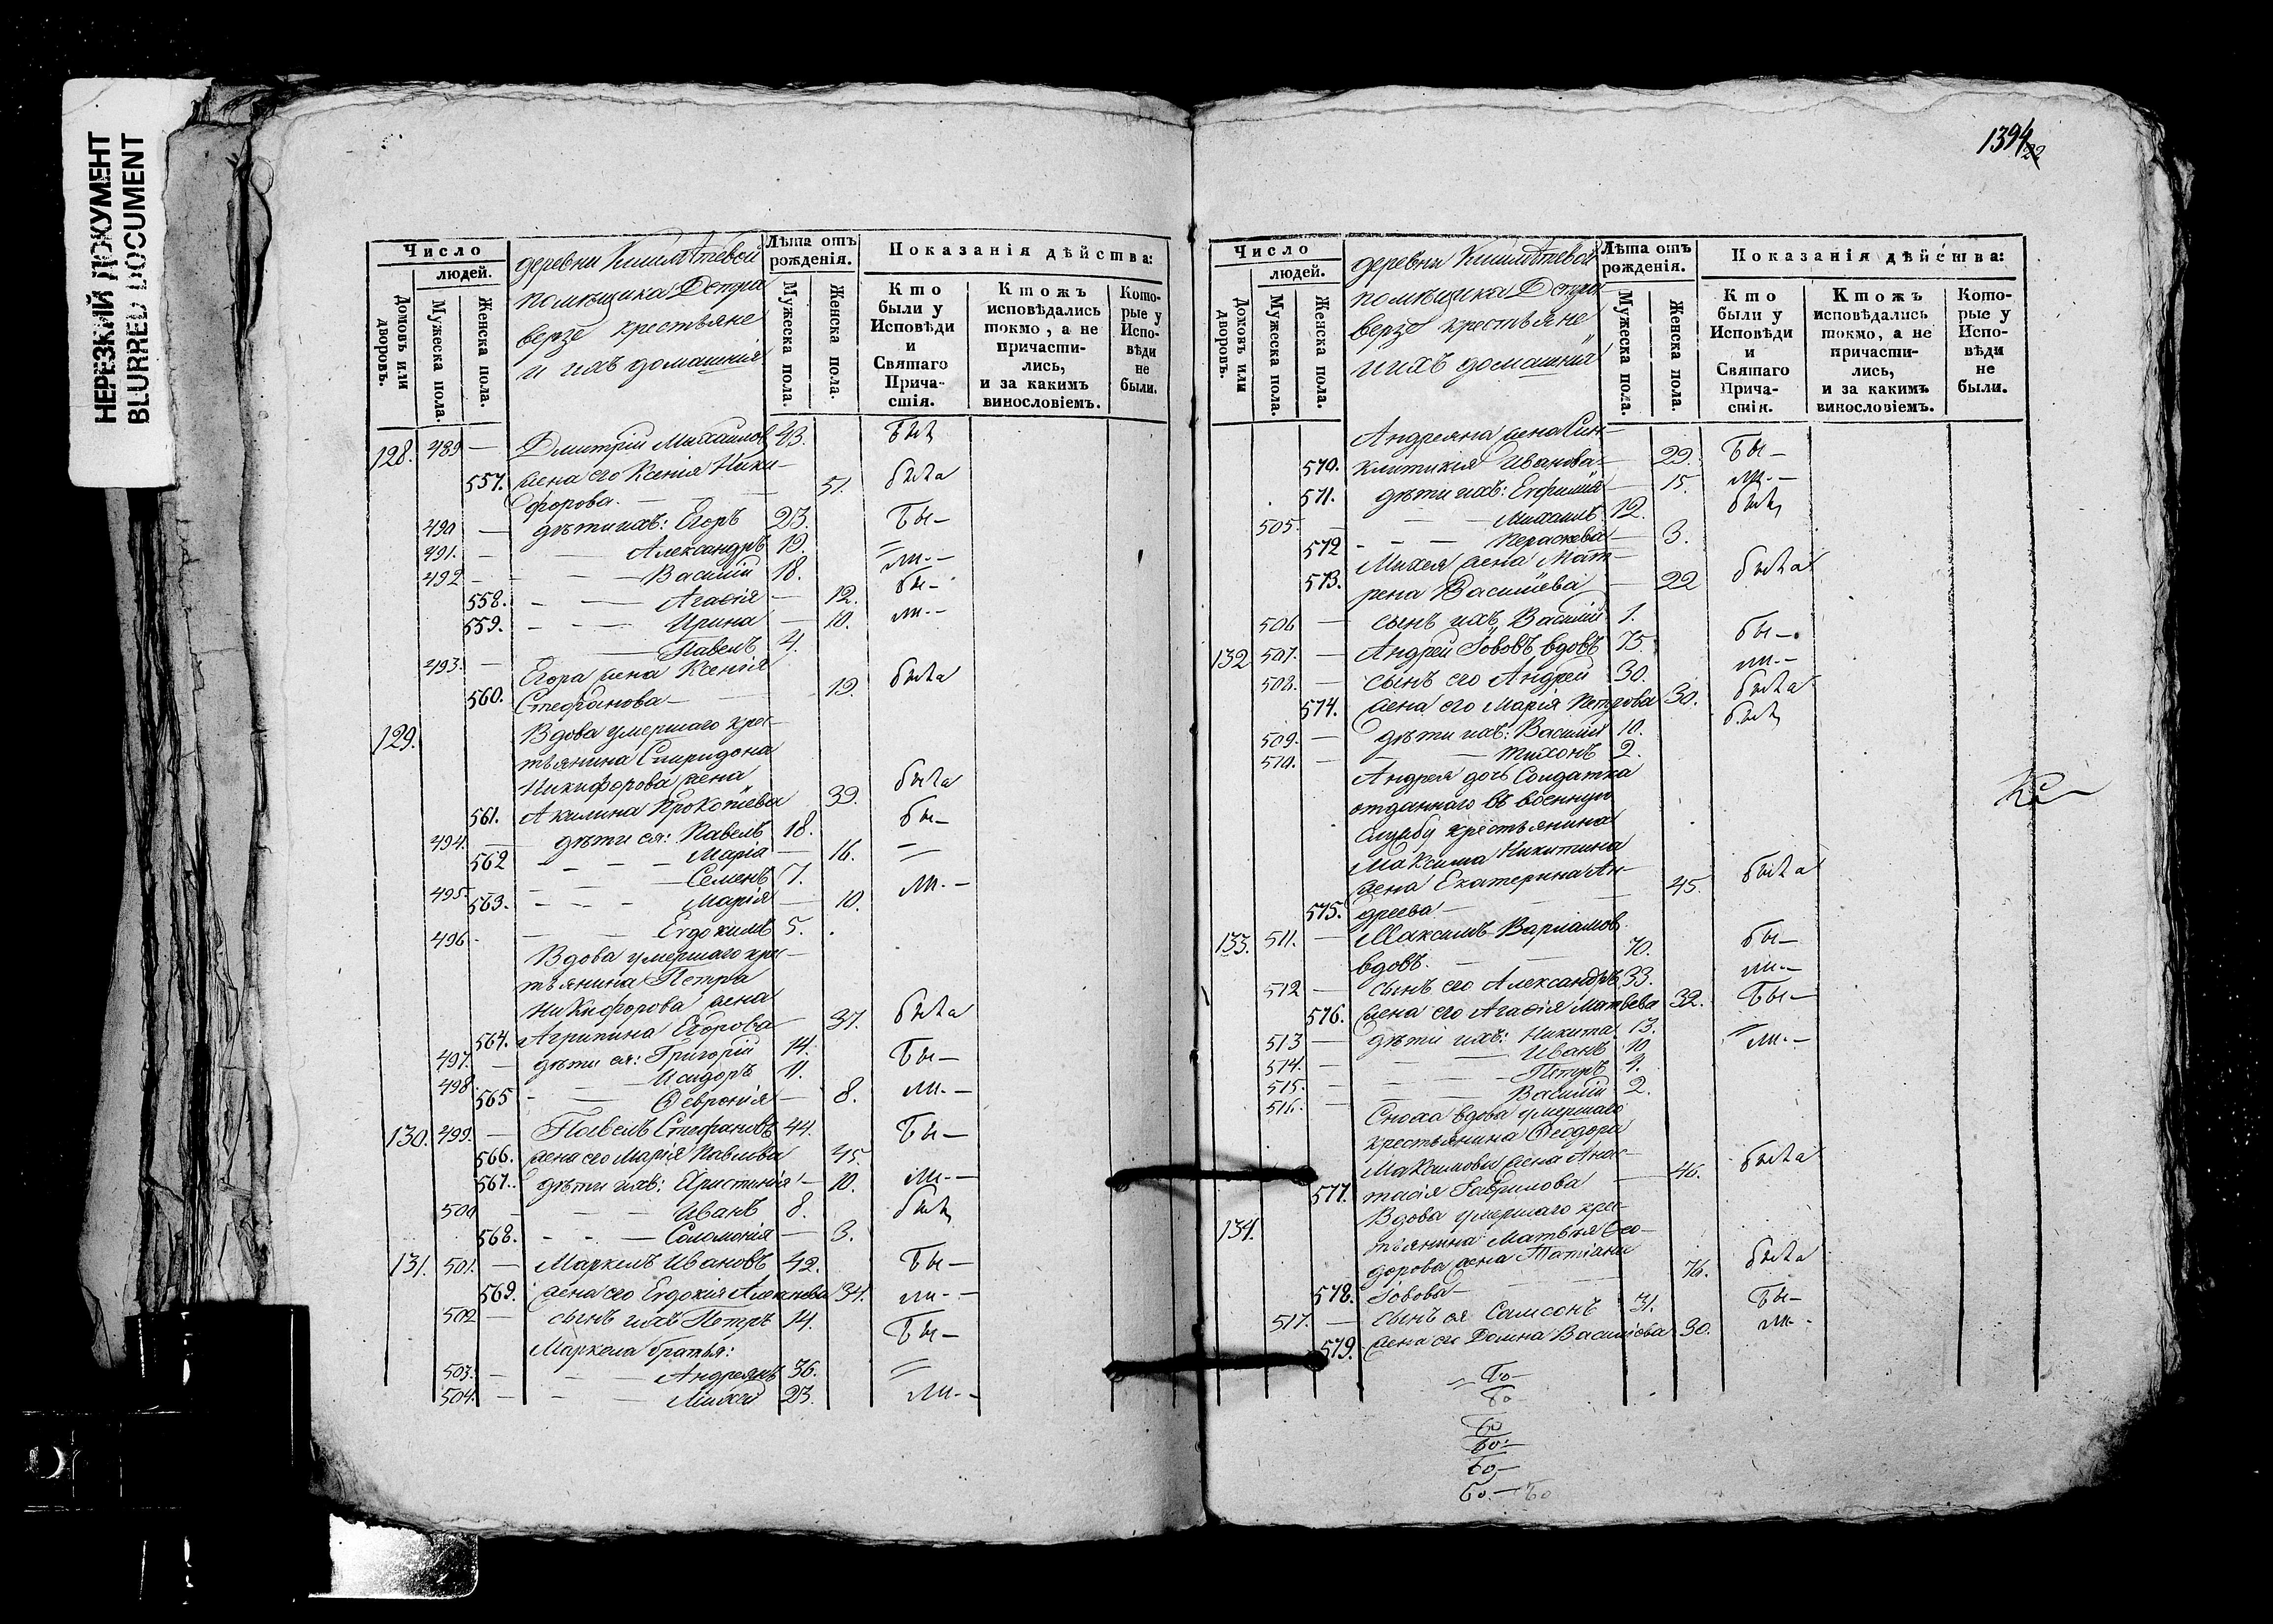 НЕРЕЗКИЙ ДОКУМЕНТ
BLURRED DOCUMENT
1394
22
Число
людей.
Домовъ или дворовъ.
Мужеска пола.
Женска пола.
деревни
помѣщика Петра
верзе крестьяне
и ихъ домашнія
Лѣта отъ рожденія.
Мужеска пола.
Женска пола.
Показанія дѣйства:
Кто были у Исповѣди и Святаго Причастія.
Ктожъ исповѣдались токмо, а не причастились, и за какимъ винословіемъ.
Которые у Исповѣди не были.
128. 489 — Дмитрій Михаиловъ 43. былъ
557. жена его Ксенія Ники- 51. была
форова —
490 — дѣти ихъ: Егоръ 23. бы—
491. — — Александръ 19. =
492 — — Василій 18. ли.—
558. — — Агаѳія — 12. бы—
559. — — Ирина — 10. ли—
493. — — Павелъ 4.
Егора жена Ксенія
560. Стефанова — 19. была
129. Вдова умершаго крес-
тьянина Спиридона
Никифорова жена
561. Акилина Прокопіева 39. была
494. — дѣти ея: Павелъ 18. бы—
562 — — Марія — 16. =
495. — — Семенъ 7.
563. — — Марія — 10. ли.—
496 — — Евдокимъ 5.
Вдова умершаго крес-
тьянина Петра
Никифорова жена
564. Агрипина Егорова 37. была
497. — дѣти ея: Григорій 14. Бы—
498. — — Исидоръ 11.
565 — — Ѳевронія — 8. ли.—
130. 499. — Павелъ Стефановъ 44. Бы—
566. жена его Марія Павлова 45.
567. дѣти ихъ: Христинія — 10. ли.—
500 — — Иванъ 8. былъ
568. — — Соломонія — 3.
131. 501. — Маркелъ Ивановъ 42. Бы—
569. жена его Евдокія Алексѣева 34. ли.—
502 — сынъ ихъ Петръ 14. Бы—
Маркела братья:
503. — — Андреянъ 36. =
504. — — Михей 23. ли.—
Число
людей.
Домовъ или дворовъ.
Мужеска пола.
Женска пола.
деревни
помѣщика Петра
верзе крестьяне
и ихъ домашнія
Лѣта отъ рожденія.
Мужеска пола.
Женска пола.
Показанія дѣйства:
Кто были у Исповѣди и Святаго Причастія.
Ктожъ исповѣдались токмо, а не причастились, и за какимъ винословіемъ.
Которые у Исповѣди не были.
Андреяна жена Син-
570. клитикія Иванова — 29. Бы—
571. дѣти ихъ: Евфимія — 15. ли.—
505. — — Михаилъ 12. былъ
572 — — Параскева — 3.
Михея жена Мат-
573. рена Василіева — 22 была
506 — сынъ ихъ Василій 1.
132 507. — Андрей Іововъ вдовъ 75. бы—
508. — сынъ его Андрей 30. ли.—
574. жена его Марія Петрова 30. была
509. — дѣти ихъ: Василій 10. былъ
510. — — Тихонъ 2.
Андрея дочь Солдатка
отданнаго въ военную
службу крестьянина
Максима Никитина
жена Екатерина Ан-
575. дреева — 45. была
133. 511. — Максимъ Варламовъ
вдовъ — 70. бы—
512 — сынъ его Александръ 33. ли.—
576. жена его Агаѳія Матвѣева 32. Бы—
513 — дѣти ихъ: Никита 13. =
514. — — Иванъ 10. ли.—
515. — — Петръ 4.
516. — — Василій 2.
Сноха вдова умершаго
крестьянина Ѳеодора
Максимова жена Анас-
577. тасія Гаврилова — 46. была
134. Вдова умершаго крес-
тьянина Матвѣя Ѳео-
дорова жена Татіана
578. Іовова — 76. была
517. — сынъ ея Самсонъ 31. Бы—
579. жена ег Домна Василіева 30. ли.
= Бо—
Бо
Бо
Бо—
Бо—
Бо.— Бо